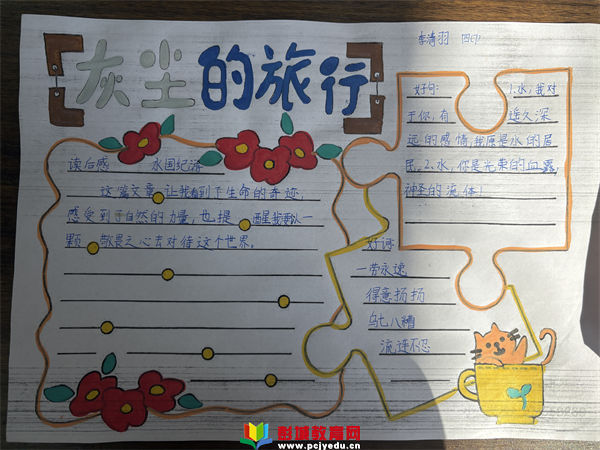 灰尘的旅行
李清羽 四(1)
读后感 水国纪游
这篇文章,让我看到了生命的奇迹,
感受到了自然的力量,也提醒我要以一
颗敬畏之心去对待这个世界。
好句: 1.水,我对
于你,有 遥久深
远的感情,我原是水的居
民。2.水,你是光荣的血露,
神圣的流体!
好词:
一劳永逸
得意扬扬
乌七八糟
流连不忍
彭城教育网
www.pcjyedu.cn